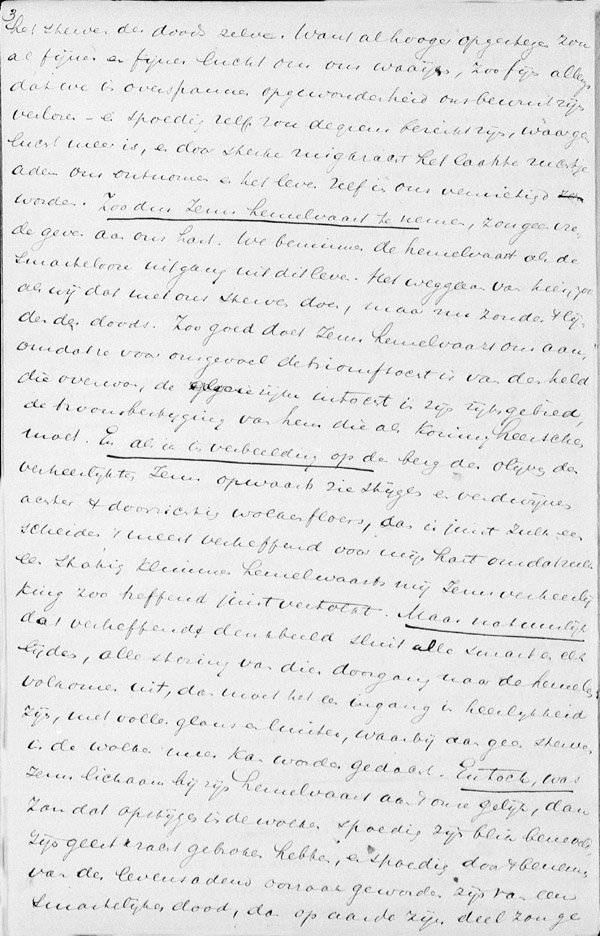 3
het sterven des doods zelve. Want al hooger opgestegen zou
al fijner en fijner lucht om ons waaijen, zoo fijn allengs
dat we in overspannen opgewondenheid ons bewustzijn
verloren – en spoedig zelf zou de grens bereikt zijn, waar geen
lucht meer is, en door sterke zuigkracht het laatste
adem ons ontnomen en het leven zelf in ons vernietigd
worden. Zoo dus Jezus hemelvaart te nemen, zou geen vre
de geven aan ons hart. We beminnen de hemelvaart als de
smarteloose uitgang uit dit leven. Het weggaan van hier, zoo
als wij dat met ons sterven doen, maar nu zonder 't lij
den des doods. Zoo goed doet Jezus hemelvaart ons aan,
omdat ze voor ons gevoel de triomftocht is van den held
die overwon, de intocht in zijn rijksgebied,
de troonsbestijging van hem die als Koning heerschen
moet. En als ik in verbeelding op de berg der olijven den
verheerlijkten Jezus opwaarts zie stijgen en verdwijnen
achter 't doorzichtig wolkenfloers, dan is juist zulk een
scheiden 't meest verheffend voor mijn hart omdat zulk
een statig klimmen hemelwaarts mij Jezus verheerlij
king zoo treffend juist vertolkt. Maar natuurlijk
dat verheffend denkbeeld sluit alle smart en elk
lijden, alle storing van dien doorgang naar de hemelen
volkomen uit, dan moet het een ingang in heerlijkheid
zijn, met vollen glans en luister, waarbij aan geen sterven
in de wolken meer kan worden gedacht. En toch, was
Jezus lichaam bij zijn hemelvaart aan 't onze gelijk, dan
zou dat opstijgen in de wolken spoedig zijn blik beneveld
zijn geestkracht gebroken hebben, en spoedig door 't benemen
van den levensadem oorzaak geworden zijn van een
smartelijken dood, die op aarde zijn deel zou ge